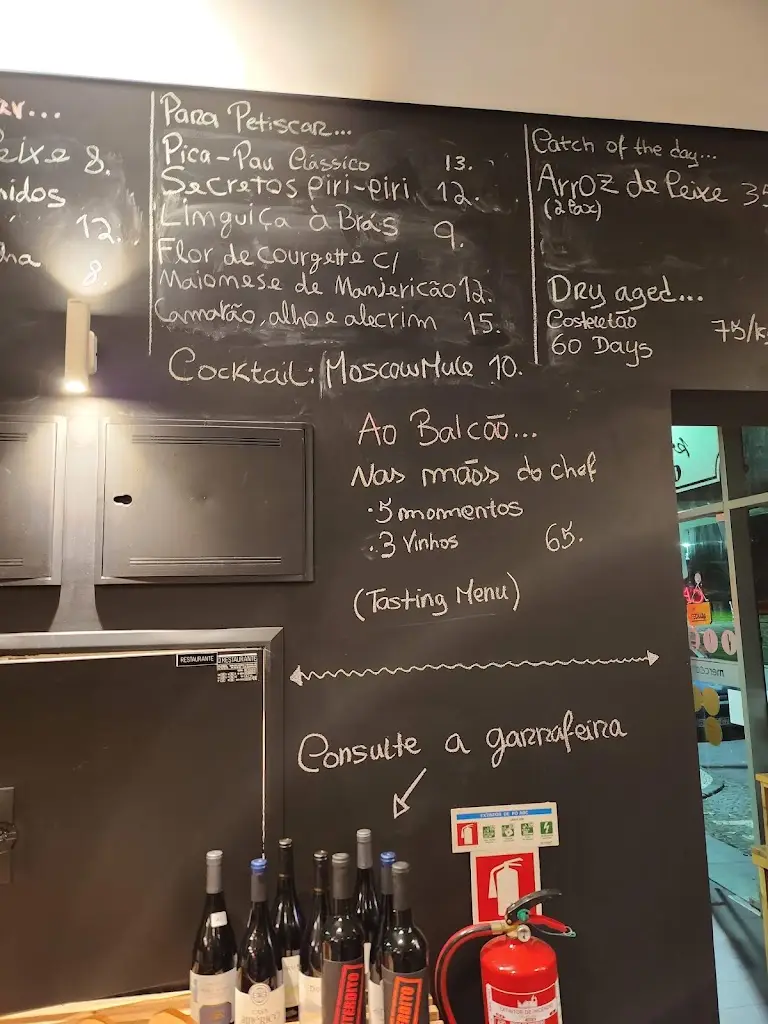 ar...
eixe 8.
nidos
12.
lha 8.
Para Petiscar...
Pica-Pau Clássico 13.
Secretos piri-piri 12.
Limguiça à Brás 9.
Flor de courgette c/
Maiomese de Manjericão 12.
Camarão, alho e alecrim 15.
Cocktail: Moscow Mule 10.
Catch of the day...
Arroz de Peixe 35
(2 Pax)
Dry aged...
Costeletão
60 Days 75/kg
Ao Balcão...
Nas mãos do chef
·5 momentos
·3 Vinhos 65.
(Tasting Menu)
RESTAURANTE
RESTAURANTE
Consulte a garrafeira
EXTINTOR DE PÓ ABC